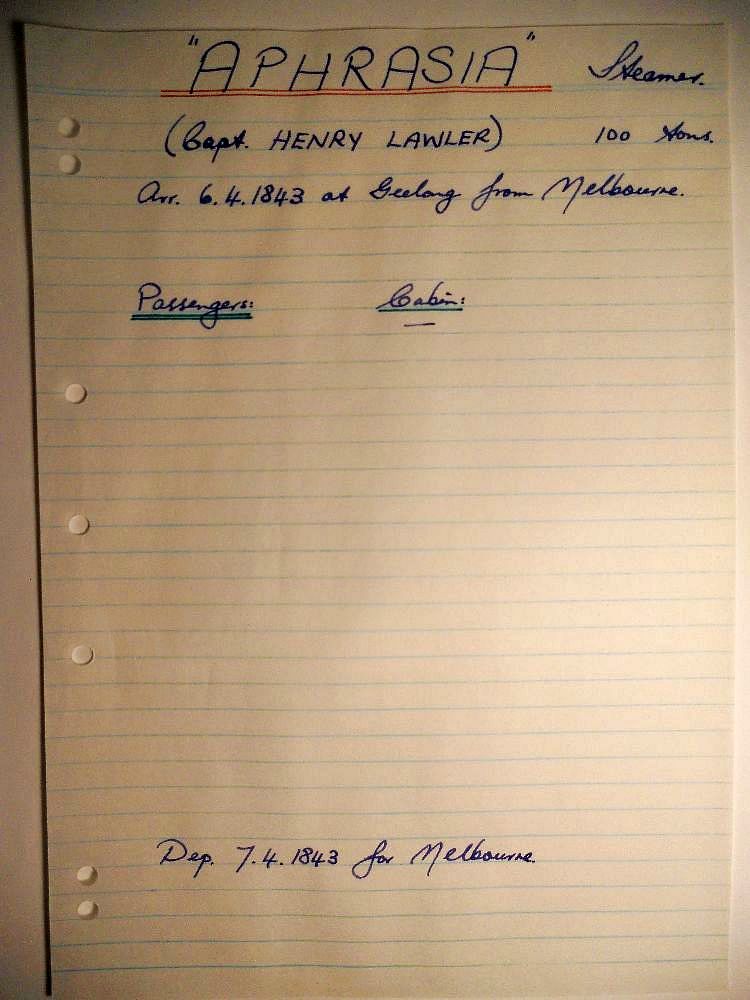 "APHRASIA" Steamer.
(Capt. HENRY LAWLER) 100 tons.
Arr. 6.4.1843 at Geelong from Melbourne.
Passengers: Cabin:
—
Dep. 7.4.1843 for Melbourne.